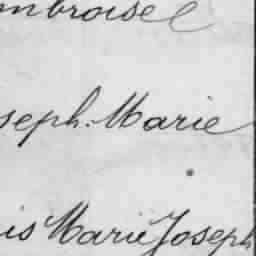 mbroise
seph. Marie
is Marie Joseph